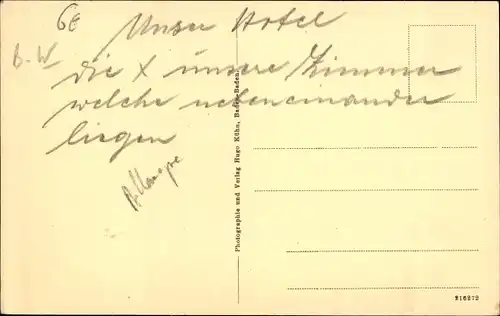 6€
B-W
Unser Hotel
die X unsere Zimmer
welche nebeneinander
liegen
Photographie und Verlag Hugo Kühn, Baden-Baden.
216272